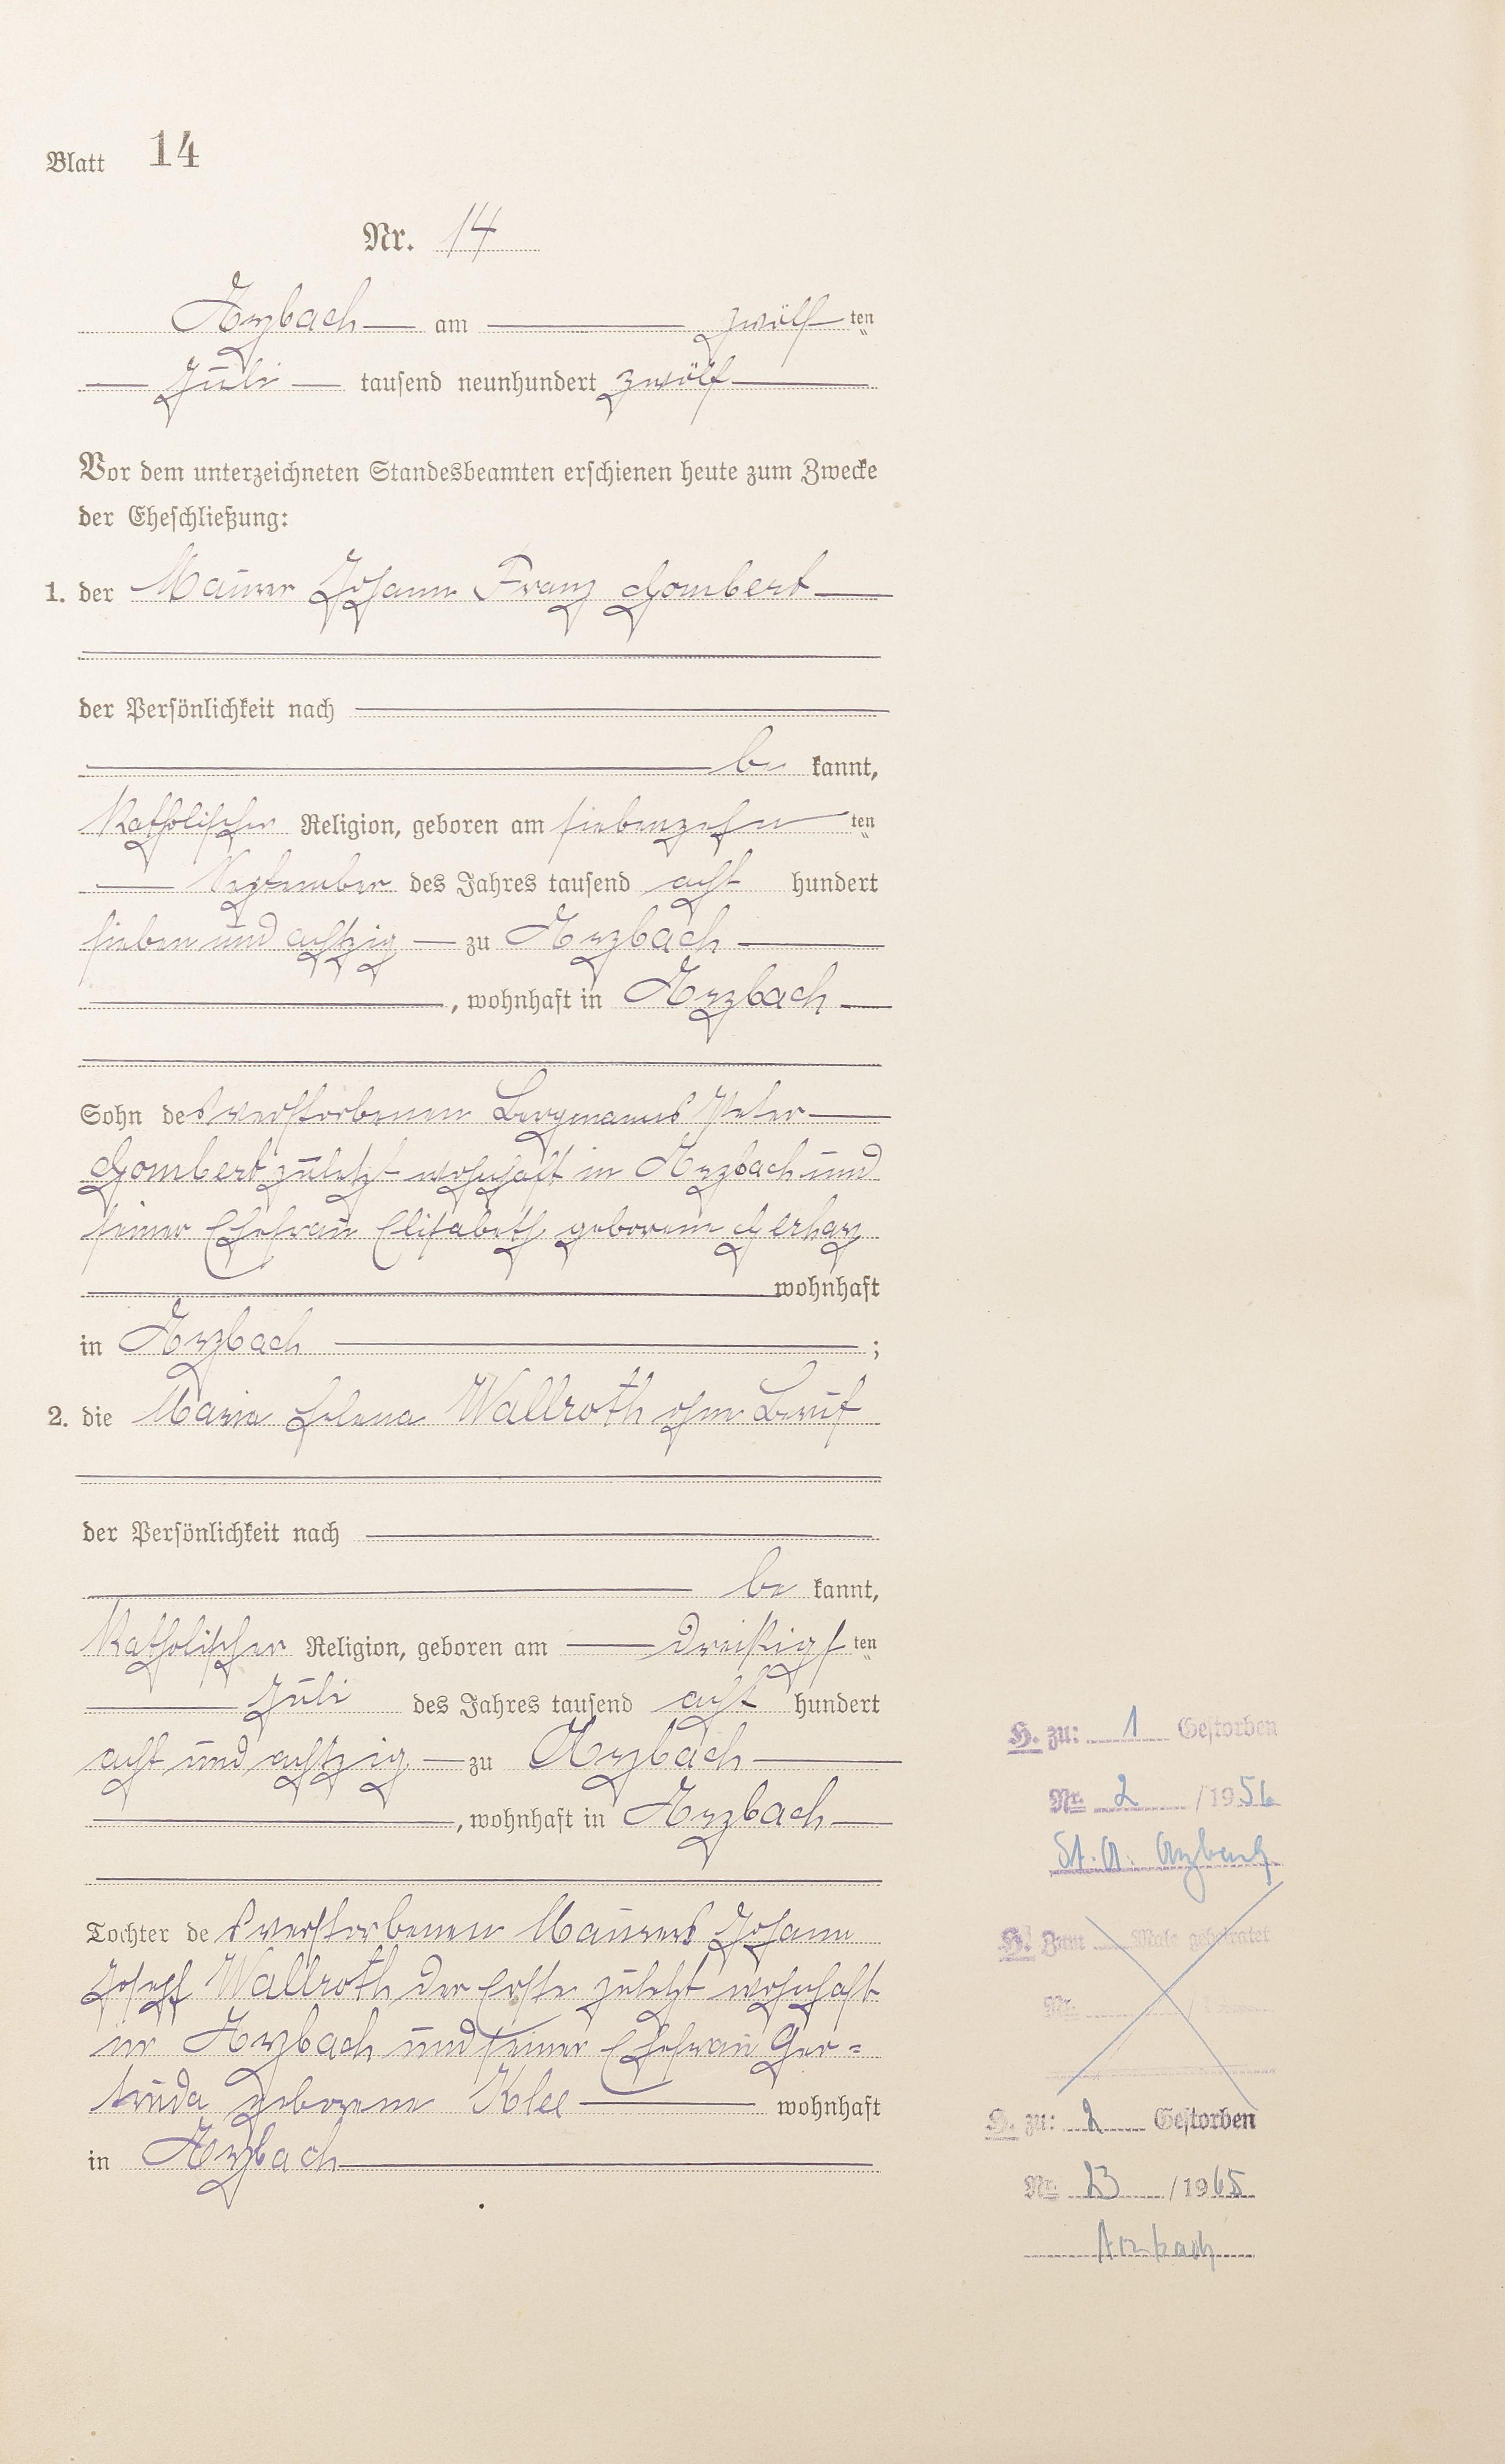 Blatt 14
Nr. 14
Arzbach am zwölf ten
Juli tausend neunhundert zwölf
Vor dem unterzeichneten Standesbeamten erschienen heute zum Zwecke
der Eheschließung:
1. der Maurer Johann Franz Gombert
der Persönlichkeit nach
be kannt,
Katholischer Religion, geboren am siebenzehn ten
September des Jahres tausend acht hundert
sieben und achtzig zu Arzbach
, wohnhaft in Arzbach
Sohn des verstorbenen Bergmanns Peter
Gombert zuletzt wohnhaft in Arzbach und
seiner Ehefrau Elisabeth geborene Gerharz
wohnhaft
in Arzbach ;
2. die Maria Helena Wallroth ohne Beruf
der Persönlichkeit nach
be kannt,
Katholischer Religion, geboren am dreißigs ten
Juli des Jahres tausend acht hundert
acht und achtzig zu Arzbach
, wohnhaft in Arzbach
Tochter des verstorbenen Maurers Johann
Josef Wallroth der Erste zuletzt wohnhaft
in Arzbach und seiner Ehefrau Ger=
truda geborene Klee wohnhaft
in Arzbach
H. zu: 1 Gestorben
Nr. 2 /1956
St. A. Arzbach
H. Zum Male geheiratet
Nr. /
H. zu: 2 Gestorben
Nr. 23 /1965
Arzbach